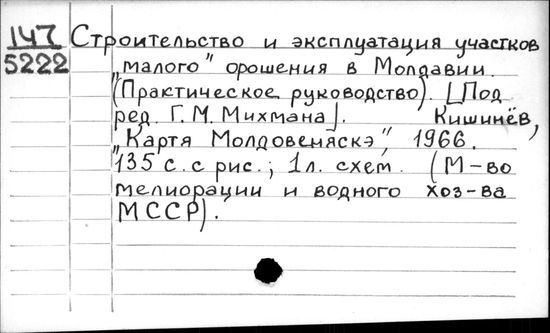 147 Строительство и эксплуатация участков
5222 „малого" орошения в Молдавии.
(Практическое руководство). [Под
ред. Г. М. Михмана]. Кишинёв,
„Картя Молдовеняскэ", 1966.
135 с. с рис.; 1 л. схем. (М-во
мелиорации и водного хоз-ва
МССР).